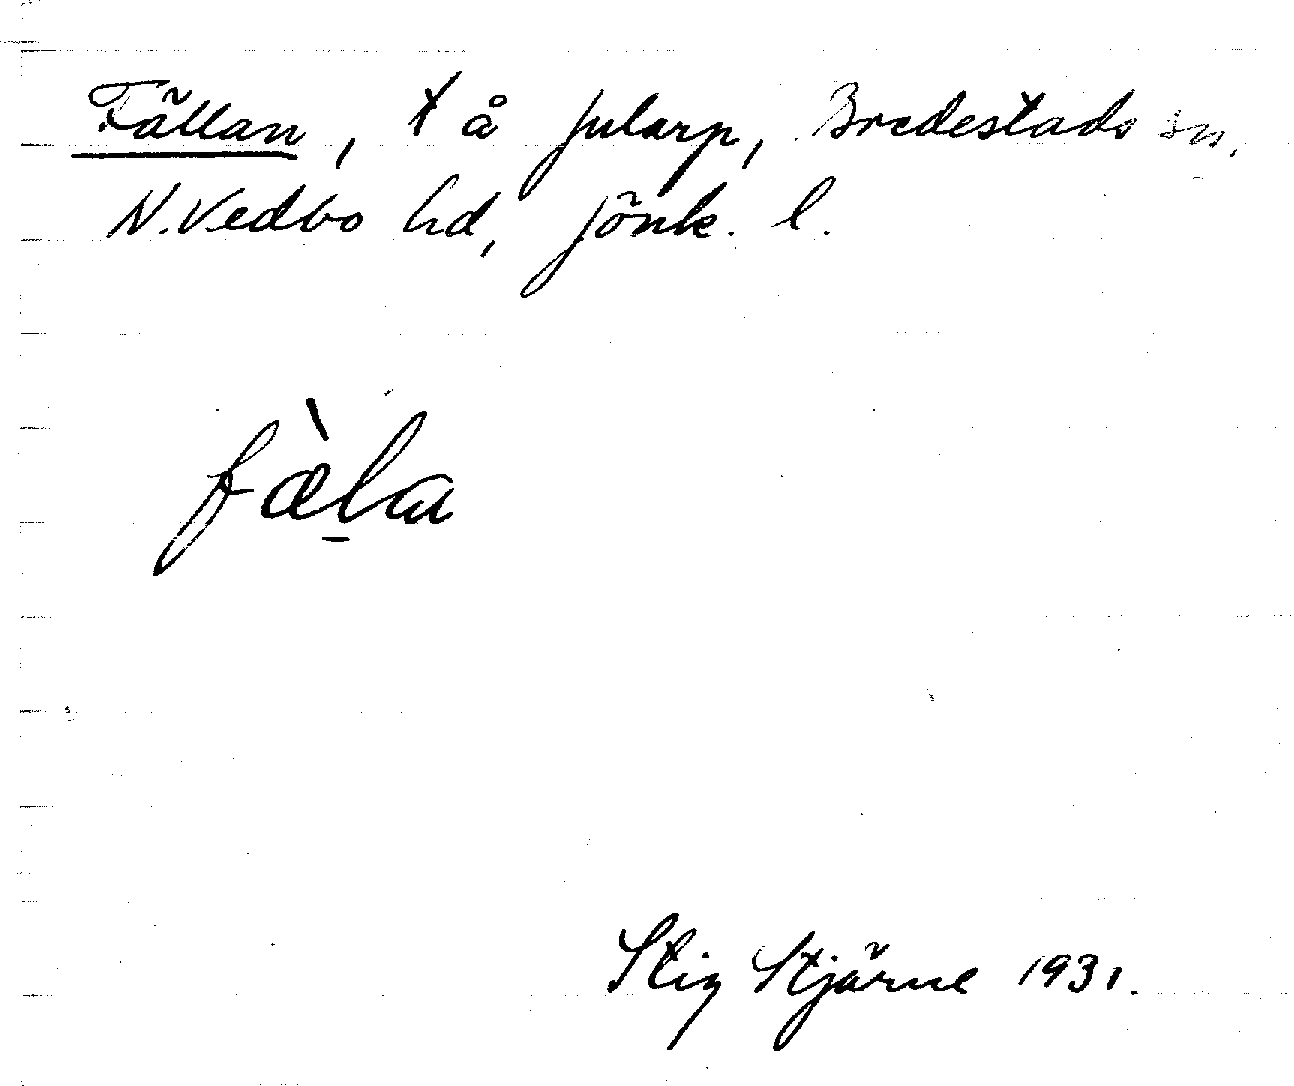 Fällan, t å Jularp, Bredestads sn.
N. Vedbo hd, Jönk. l.
fæ̀l̠a
Stig Stjärne 1931.